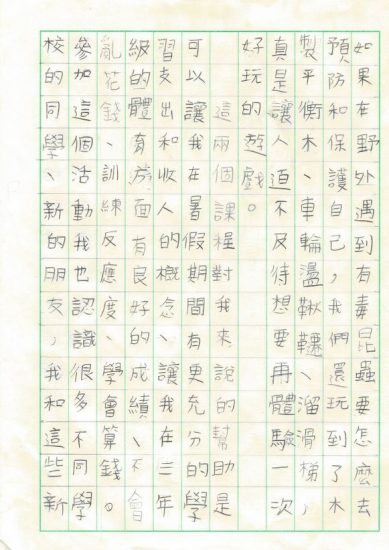 如果在野外遇到有毒昆蟲要怎麼去
預防和保護自己，我們還玩到了木
製平衡木、車輪盪鞦韆、溜滑梯，
真是讓人迫不及待想要再體驗一次
好玩的遊戲。
這兩個課程對我來說的幫助是
可以讓我在暑假期間有更充分的學
習支出和收人的概念、讓我在三年
級的體育方面有良好的成績、不會
亂花錢、訓練反應度、學會算錢。
參加這個活動我也認識很多不同學
校的同學、新的朋友，我和這些新